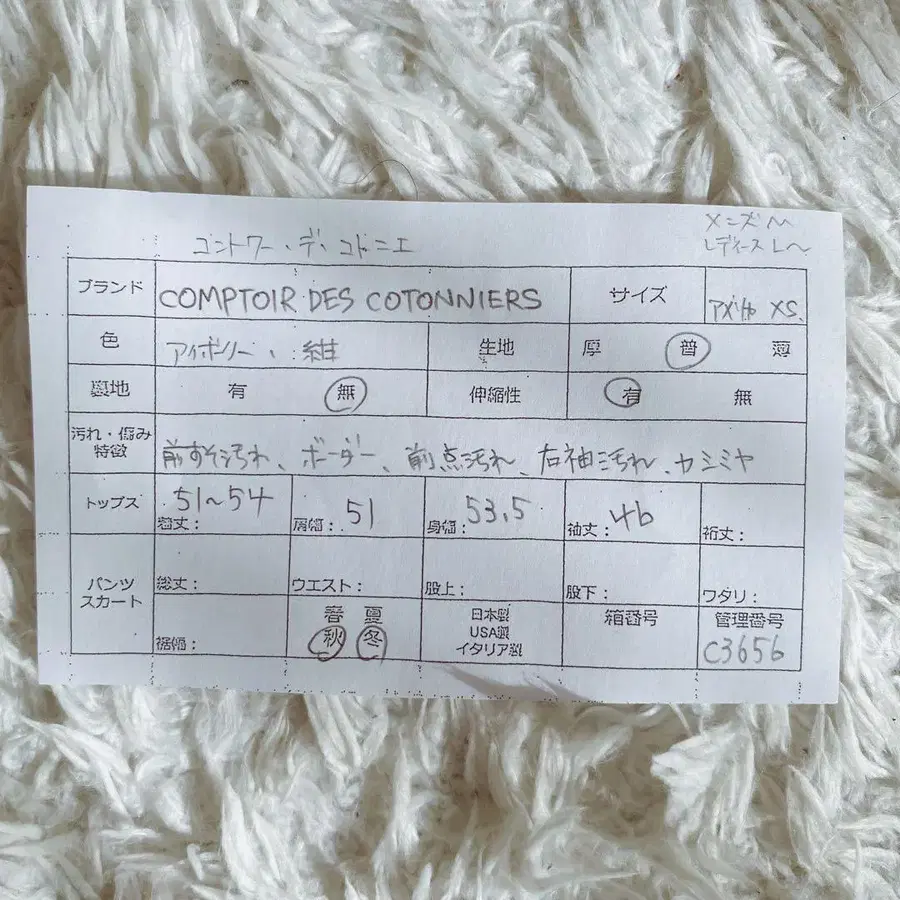 メンズM
コントワー・デ・コトニエ レディースL〜
ブランド COMPTOIR DES COTONNIERS サイズ XS
色 アイボリー、紺 生地 厚 普 薄
裏地 有 無 伸縮性 有 無
汚れ・傷み
特徴 前すそ汚れ、ボーダー、前点汚れ、右袖汚れ、カシミヤ
トップス 51〜54 着丈: 肩幅: 51 身幅: 53.5 袖丈: 46 裄丈:
パンツ
スカート 総丈: ウエスト: 股上: 股下: ワタリ:
裾幅: 春 夏 秋 冬 日本製
USA製
イタリア製 箱番号 管理番号
C3656